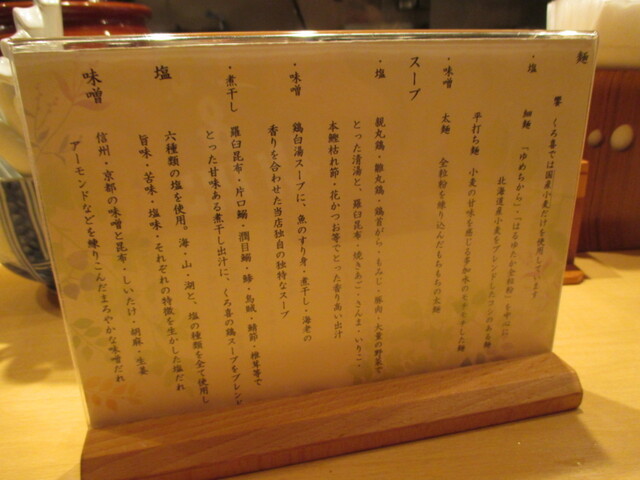 麺
響 くろ喜では国産小麦だけを使用しています
・塩
細麺 「ゆめちから」・「はるゆたか全粒粉」を中心に
北海道産小麦をブレンドしたコシのある麺
平打ち麺 小麦の甘味を感じる多加水のモチモチした麺
・味噌
太麺 全粒粉を練り込んだもちもちの太麺
スープ
・塩
親丸鶏・雛丸鶏・鶏首がら・もみじ・豚肉・大量の野菜で
とった清湯と、羅臼昆布・焼きあご・さんま・いりこ・
本鰹枯れ節・花かつお等でとった香り高い出汁
・味噌
鶏白湯スープに、魚のすり身・煮干し・海老の
香りを合わせた当店独自の独特なスープ
・煮干し
羅臼昆布・片口鰯・潤目鰯・鯵・烏賊・鯖節・椎茸等で
とった甘味ある煮干し出汁に、くろ喜の鶏スープをブレンド
塩
六種類の塩を使用。海・山・湖と、塩の種類を全て使用し
旨味・苦味・塩味・それぞれの特徴を生かした塩だれ
味噌
信州・京都の味噌と昆布・しいたけ・胡麻・生姜
アーモンドなどを練りこんだまろやかな味噌だれ